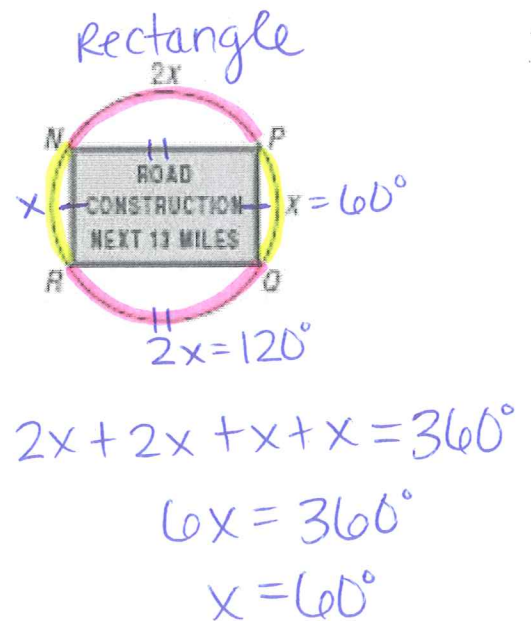 Rectangle
2x
N P
ROAD
x CONSTRUCTION x = 60°
NEXT 13 MILES
R Q
2x = 120°
2x + 2x + x + x = 360°
6x = 360°
x = 60°